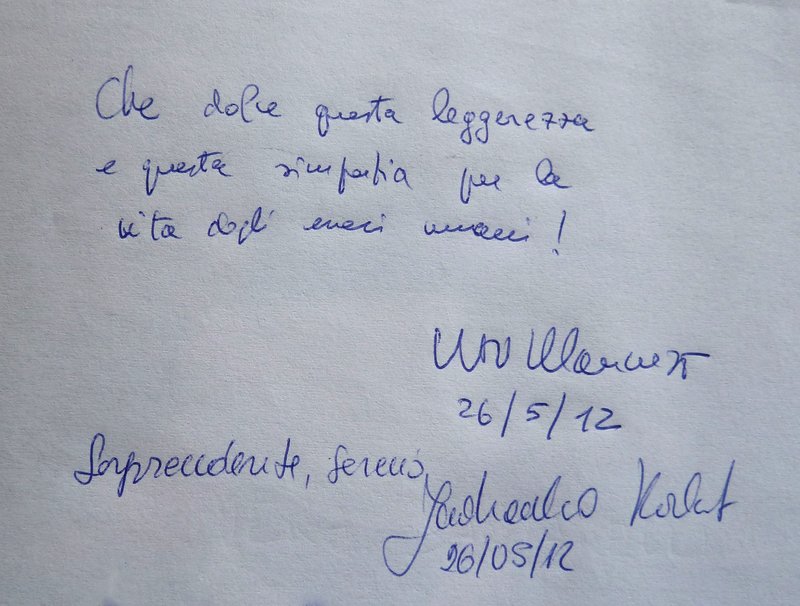 Che dolce questa leggerezza
e questa simpatia per la
vita degli esseri umani!
26/5/12
Sorprendente, sereno,
26/05/12